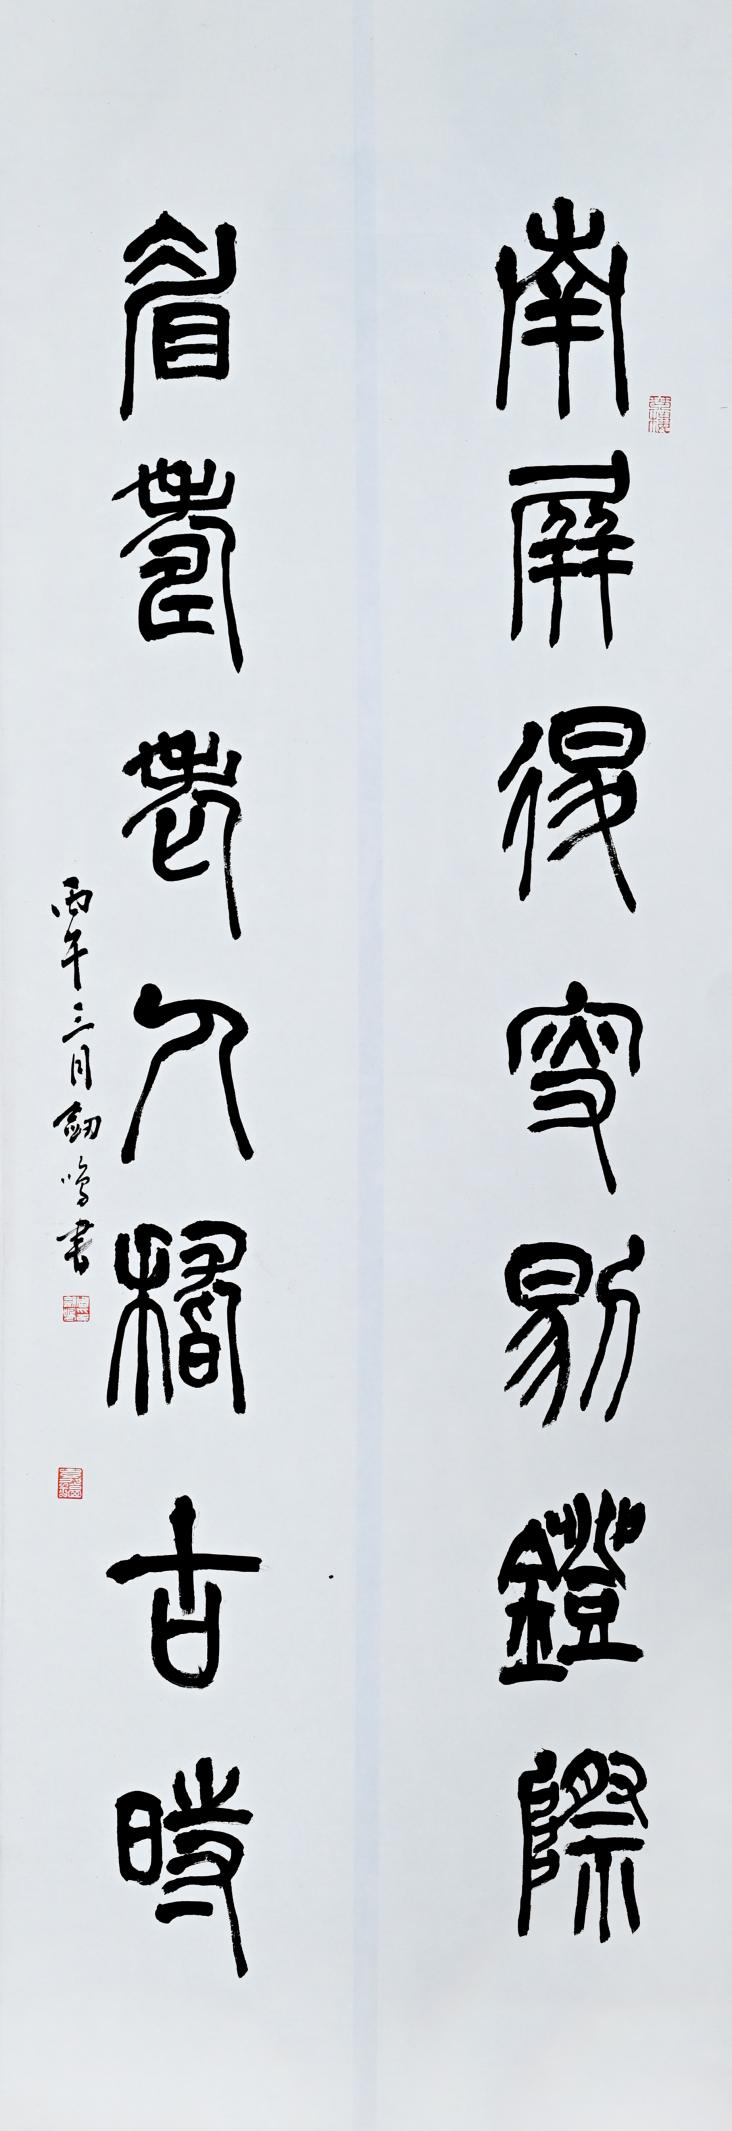 南屏退叟剔鐙際
眉壽老人稽古時
丙午三月劍鳴書